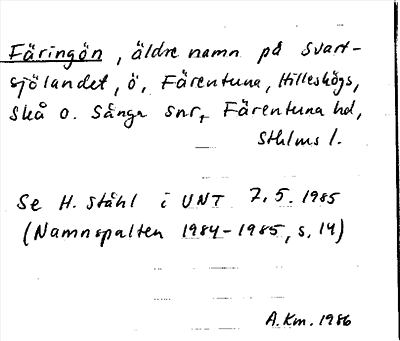 Färingön, äldre namn på Svart-
sjölandet, ö, Färentuna, Hilleshögs,
Skå o. Sånga snr, Färentuna hd,
Sthlms l.
Se H. Ståhl i UNT 7.5.1985
(Namnspalten 1984-1985, s. 14)
A.Km. 1986